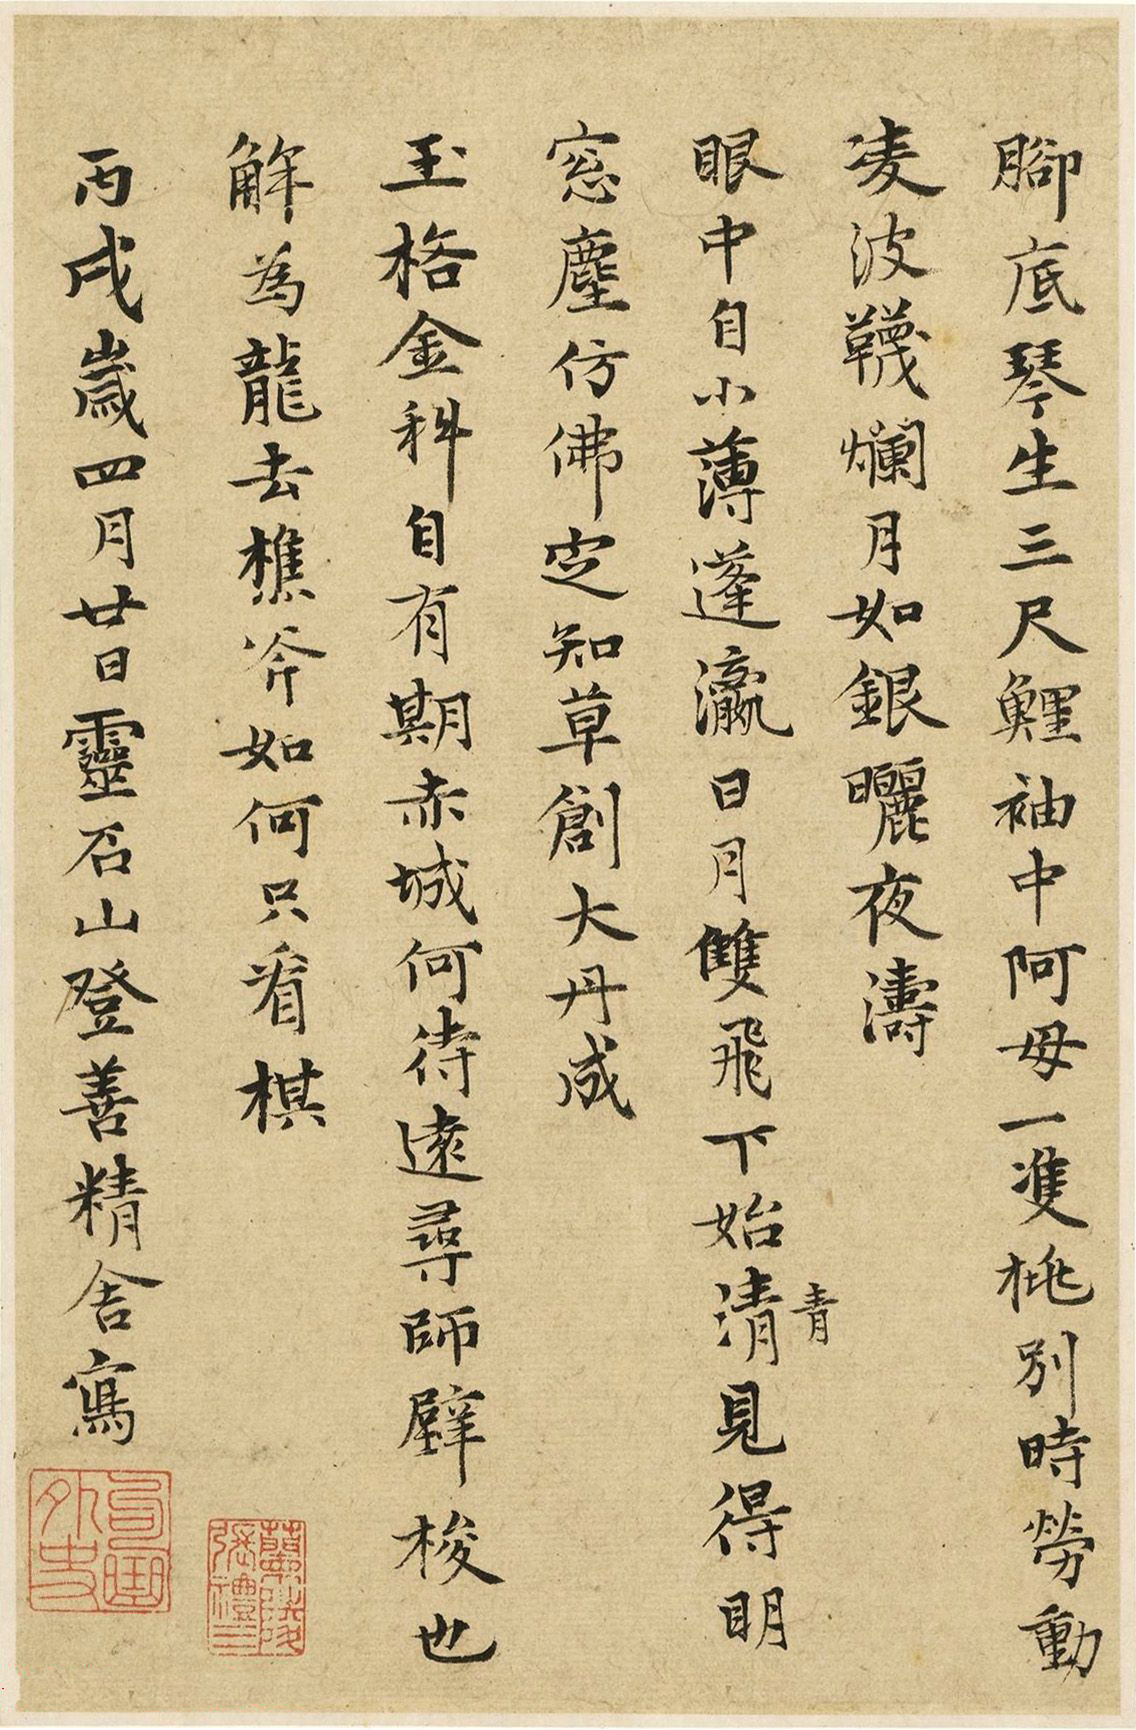 腳底琴生三尺鯉袖中阿母一隻桃別時勞動
凌波韈爛月如銀曬夜濤
眼中自小薄蓬瀛日月雙飛下始清見得明
青
窓塵仿佛定知草創大丹成
玉格金科自有期赤城何待遠尋師壁梭也
解為龍去樵斧如何只看棋
丙戌歲四月廿日靈石山登善精舍寫
句曲外史
蘭陵張禮三